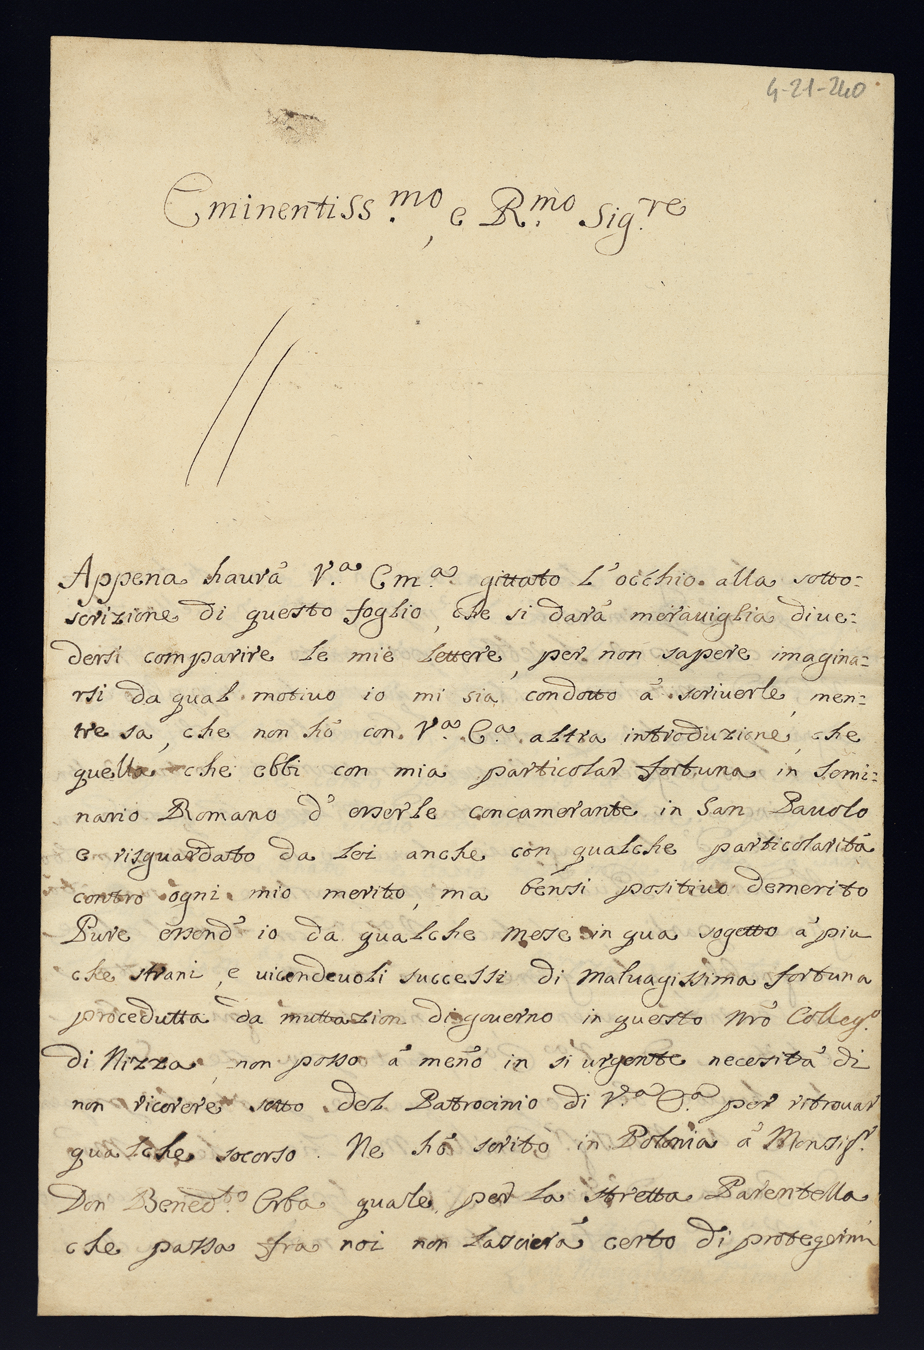 4-21-240
Eminentiss.mo, e R.mo Sig.re
Appena haurà V.a Em.a gittato l'occhio alla sotto=
scrizione di questo foglio, che si darà merauiglia di ue=
dersi comparire le mie lettere, per non sapere imagina=
rsi da qual motiuo io mi sia condotto à scriuerle, men=
tre sa, che non hò con V.a E.a altra introduzione, che
quella che ebbi con mia particolar fortuna in Semi=
nario Romano d'esserle concamerante in San Pauolo
e risguardato da lei anche con qualche particolarità
contro ogni mio merito, ma bensi positiuo demerito
Pure essend' io da qualche mese in qua sogetto à piu
che strani, e uicendeuoli successi di maluagissima fortuna
procedutta da muttazion di gouerno in questo nro Colleg.o
di Nizza, non posso à meno in si urgente necesità di
non ricorere sotto del Patrocinio di V.a E.a per ritrouar
qualche socorso. Ne hò scrito in Polonia à Monsig.r
Don Bened.to Erba quale per la stretta Parentella
che passa fra noi non lascierà certo di protegermi